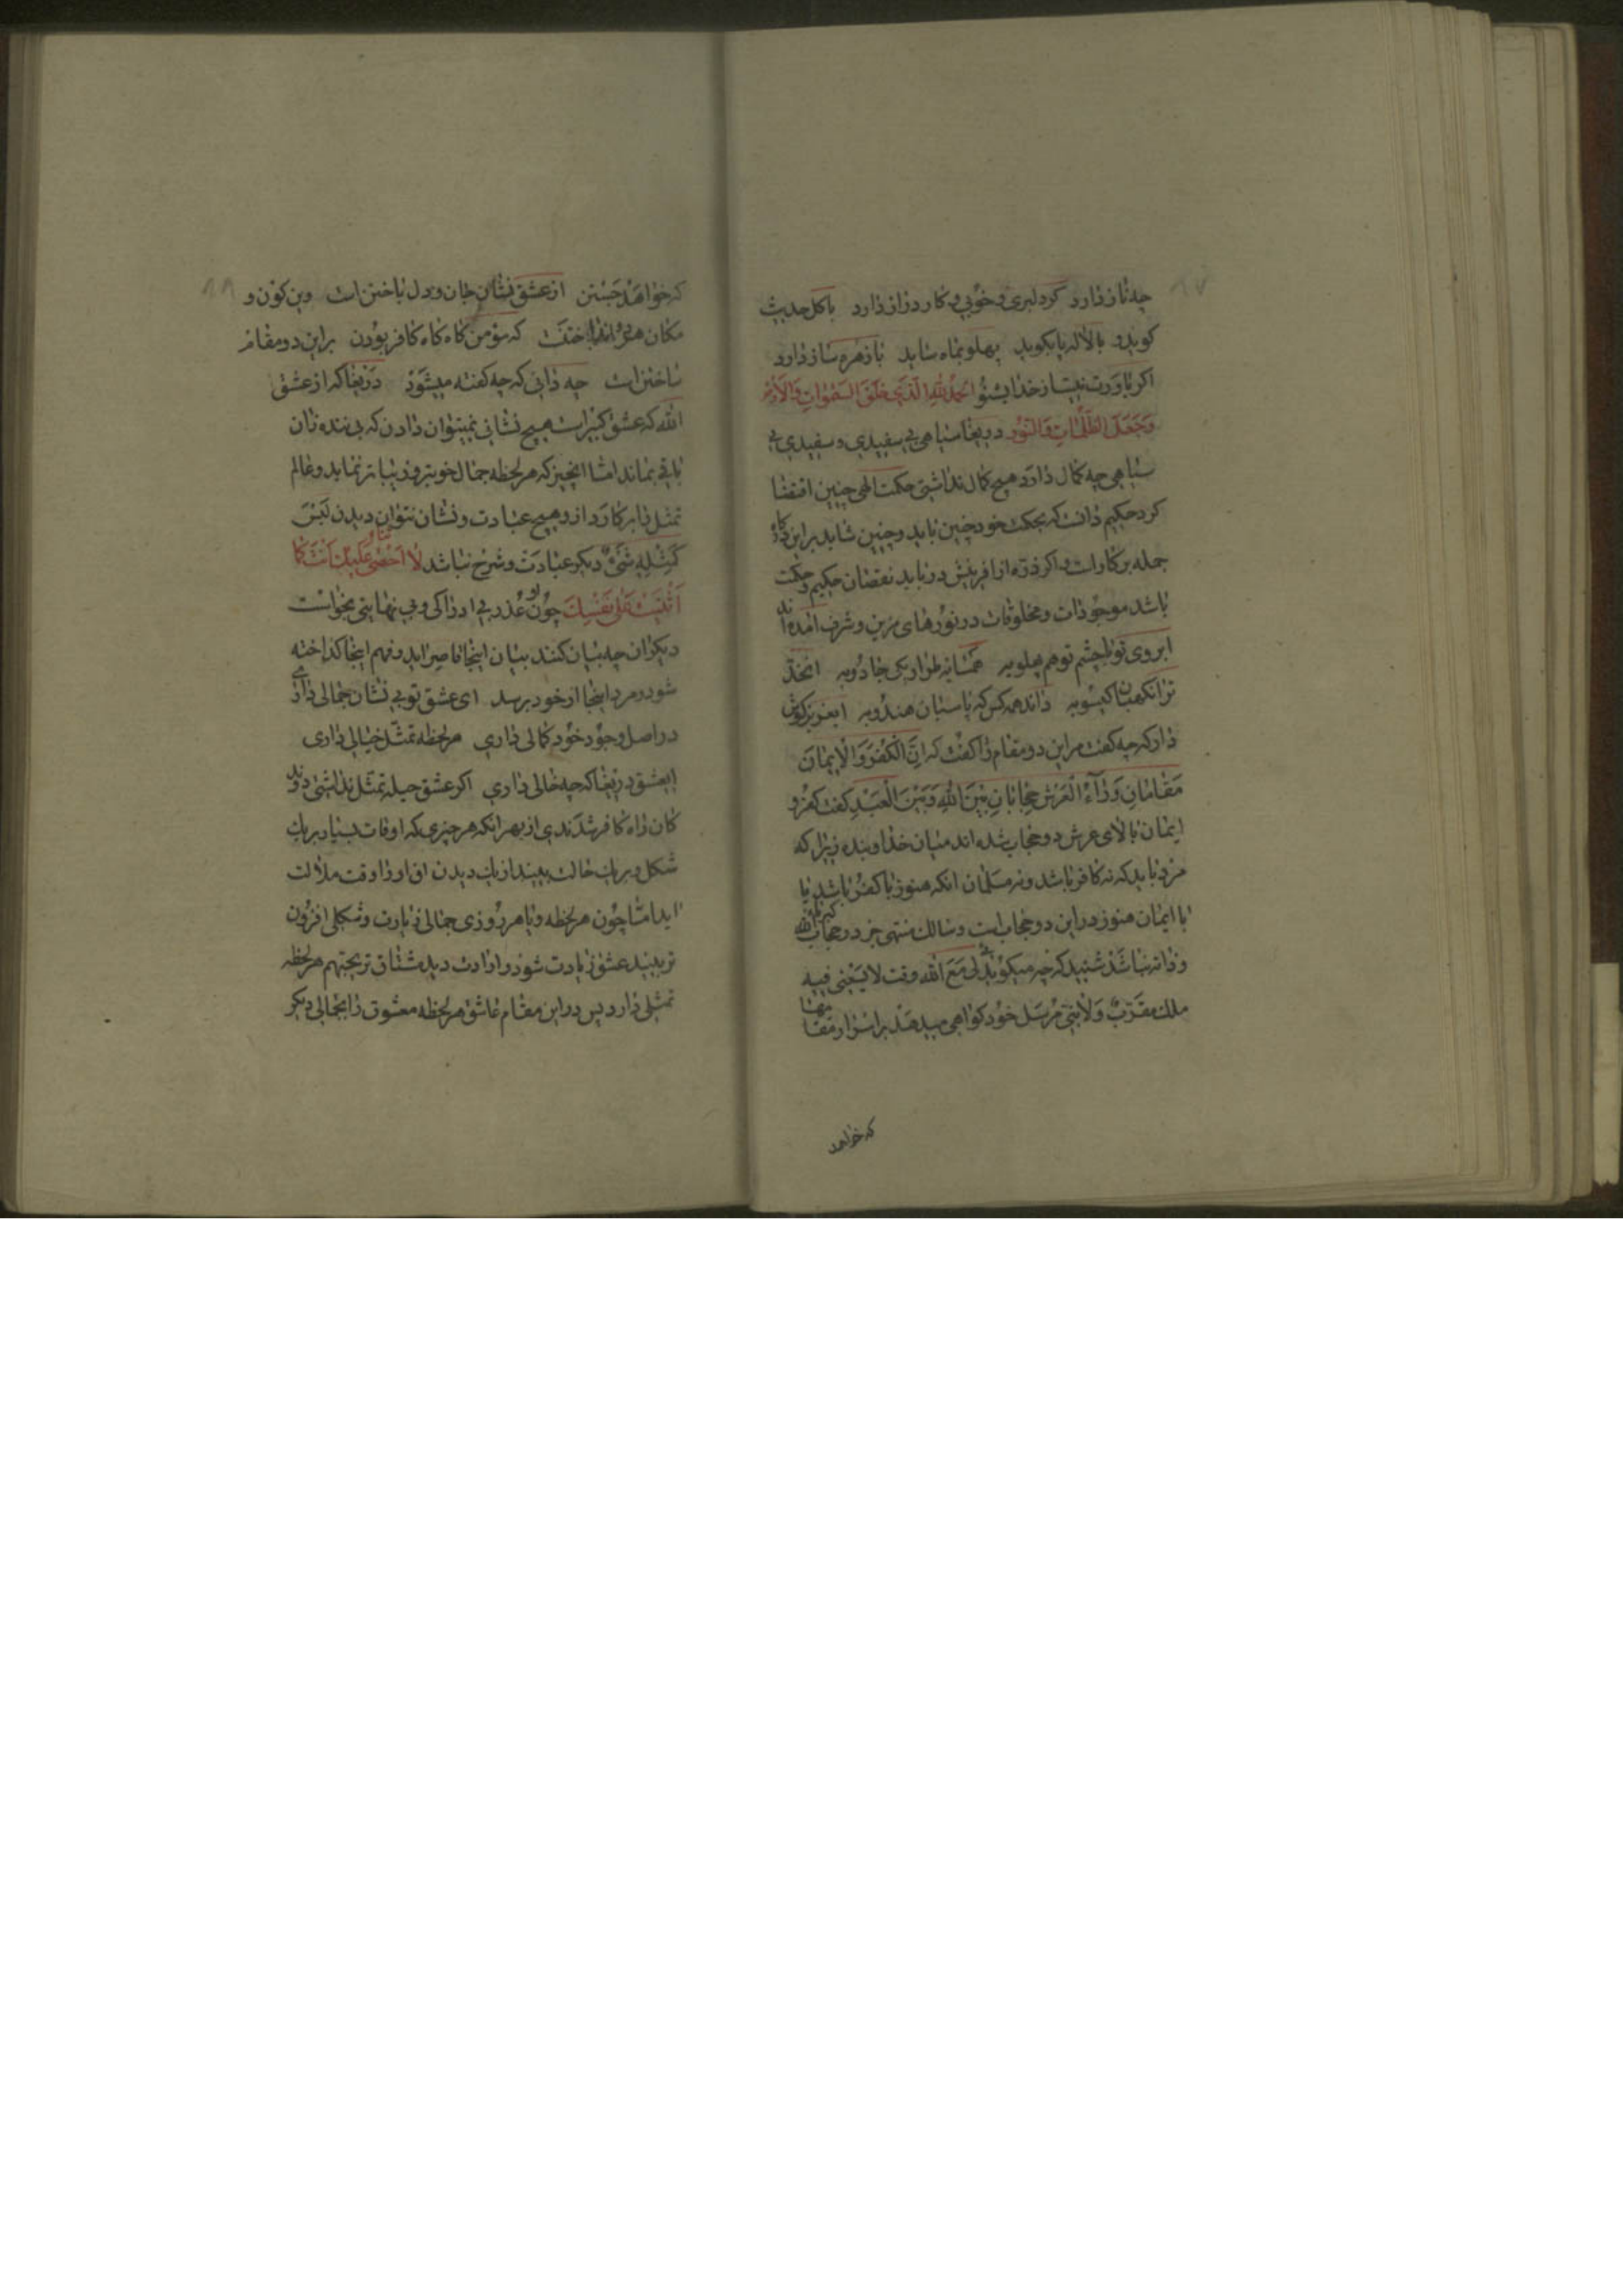 چه ناز دارد کردلبری و خوبی و کار دراز دارد با کل حدیث
کوید و با لاله پا بکوبد پهلو بماه ساید با زهره ساز دارد
اکر باورت نیست از خدا بشنو الحمد لله الذی خلق السموات والارض
وجعل الظلمات والنور دریغا سیاهی بی سفیدی و سفیدی بی
سیاهی چه کمال دارد هیچ کمال نداشتی حکمت الهی چنین اقتضا
کرد حکیم دانست که بحکمت خود چنین باید و چنین شاید بر این درکاه
جمله بر کاراست و اکر ذره از افرینش درباید نقصان حکیم و حکمت
باشد موجودات و مخلوقات در نورهای مزین و شرف امده اند
ابروی تو با چشم تو هم پهلو به همسایه طرار یکی جادو به انخد
ترا نکهبان کیسو به داند همه کس که پاسبان هندو به ایعزیز کوش
دار که چه کفت مر این دو مقام را کفت که ان الکفر والایمان
مقامان وراء العرش حجابان بین الله وبین العبد کفت کفر و
ایمان بالای عرش دو حجاب شده اند میان خدا و بنده زیرا که
مرد باید که نه کافر باشد و نه مسلمان انکه هنوز با کفر باشد یا
با ایمان هنوز در این دو حجابست و سالک منتهی جز در حجاب کبریاء الله
و ذاته نباشد شنیدی که چه میکوید لی مع الله وقت لا یسعنی فیه
ملک مقرب ولا نبی مرسل خود کواهی میدهد بر اسرار مقامها
که خواهد
که خواهد جستن از عشق نشان جان و دل باختن است وین کون و
مکان هر دو انداختنست که مومن کاه کاه کافر بودن بر این دو مقام
ساختن است چه دانی که چه کفته میشود دریغا که از عشق
الله که عشق کبیر است هیچ نشانی نمیتوان دادن که بیننده تان
باقی بماند اما انچیز که هر لحظه جمال خوبتر و زیباتر نماید و عالم
تمثل بر کار دارد هیچ عبارت و نشان نتوان دیدن لیس
کمثله شیء دیکر عبارت و شرح نباشد لا احصی ثناء علیک انت کما
اثنیت علی نفسک چون او عذر بی ادراکی و بی نهایتی بخواست
دیکران چه بیان کنند بیان اینجا قاصر اید و فهم اینجا کداخته
شود و مرد اینجا از خود برسد ای عشق تو بی نشان جمالی داری
در اصل وجود خود کمالی داری هر لحظه تمثل خیالی داری
ایعشق دریغا که چه حالی داری اکر عشق حیله تمثل نداشتی روند
کان راه کافر شدندی از بهر انکه هر چیزی که اوقات بسیار بر یک
شکل و بر یک حالت بیند از یک دیدن ان او را وقت ملالت
اید اما چون هر لحظه و یا هر روزی جمالی زیادت و شکلی افزون
تر بیند عشق زیادت شود و ارادت دیده مشتاق تر یحبهم هر لحظه
تمثلی دارد پس در این مقام عاشق هر لحظه معشوق را بجمالی دیکر